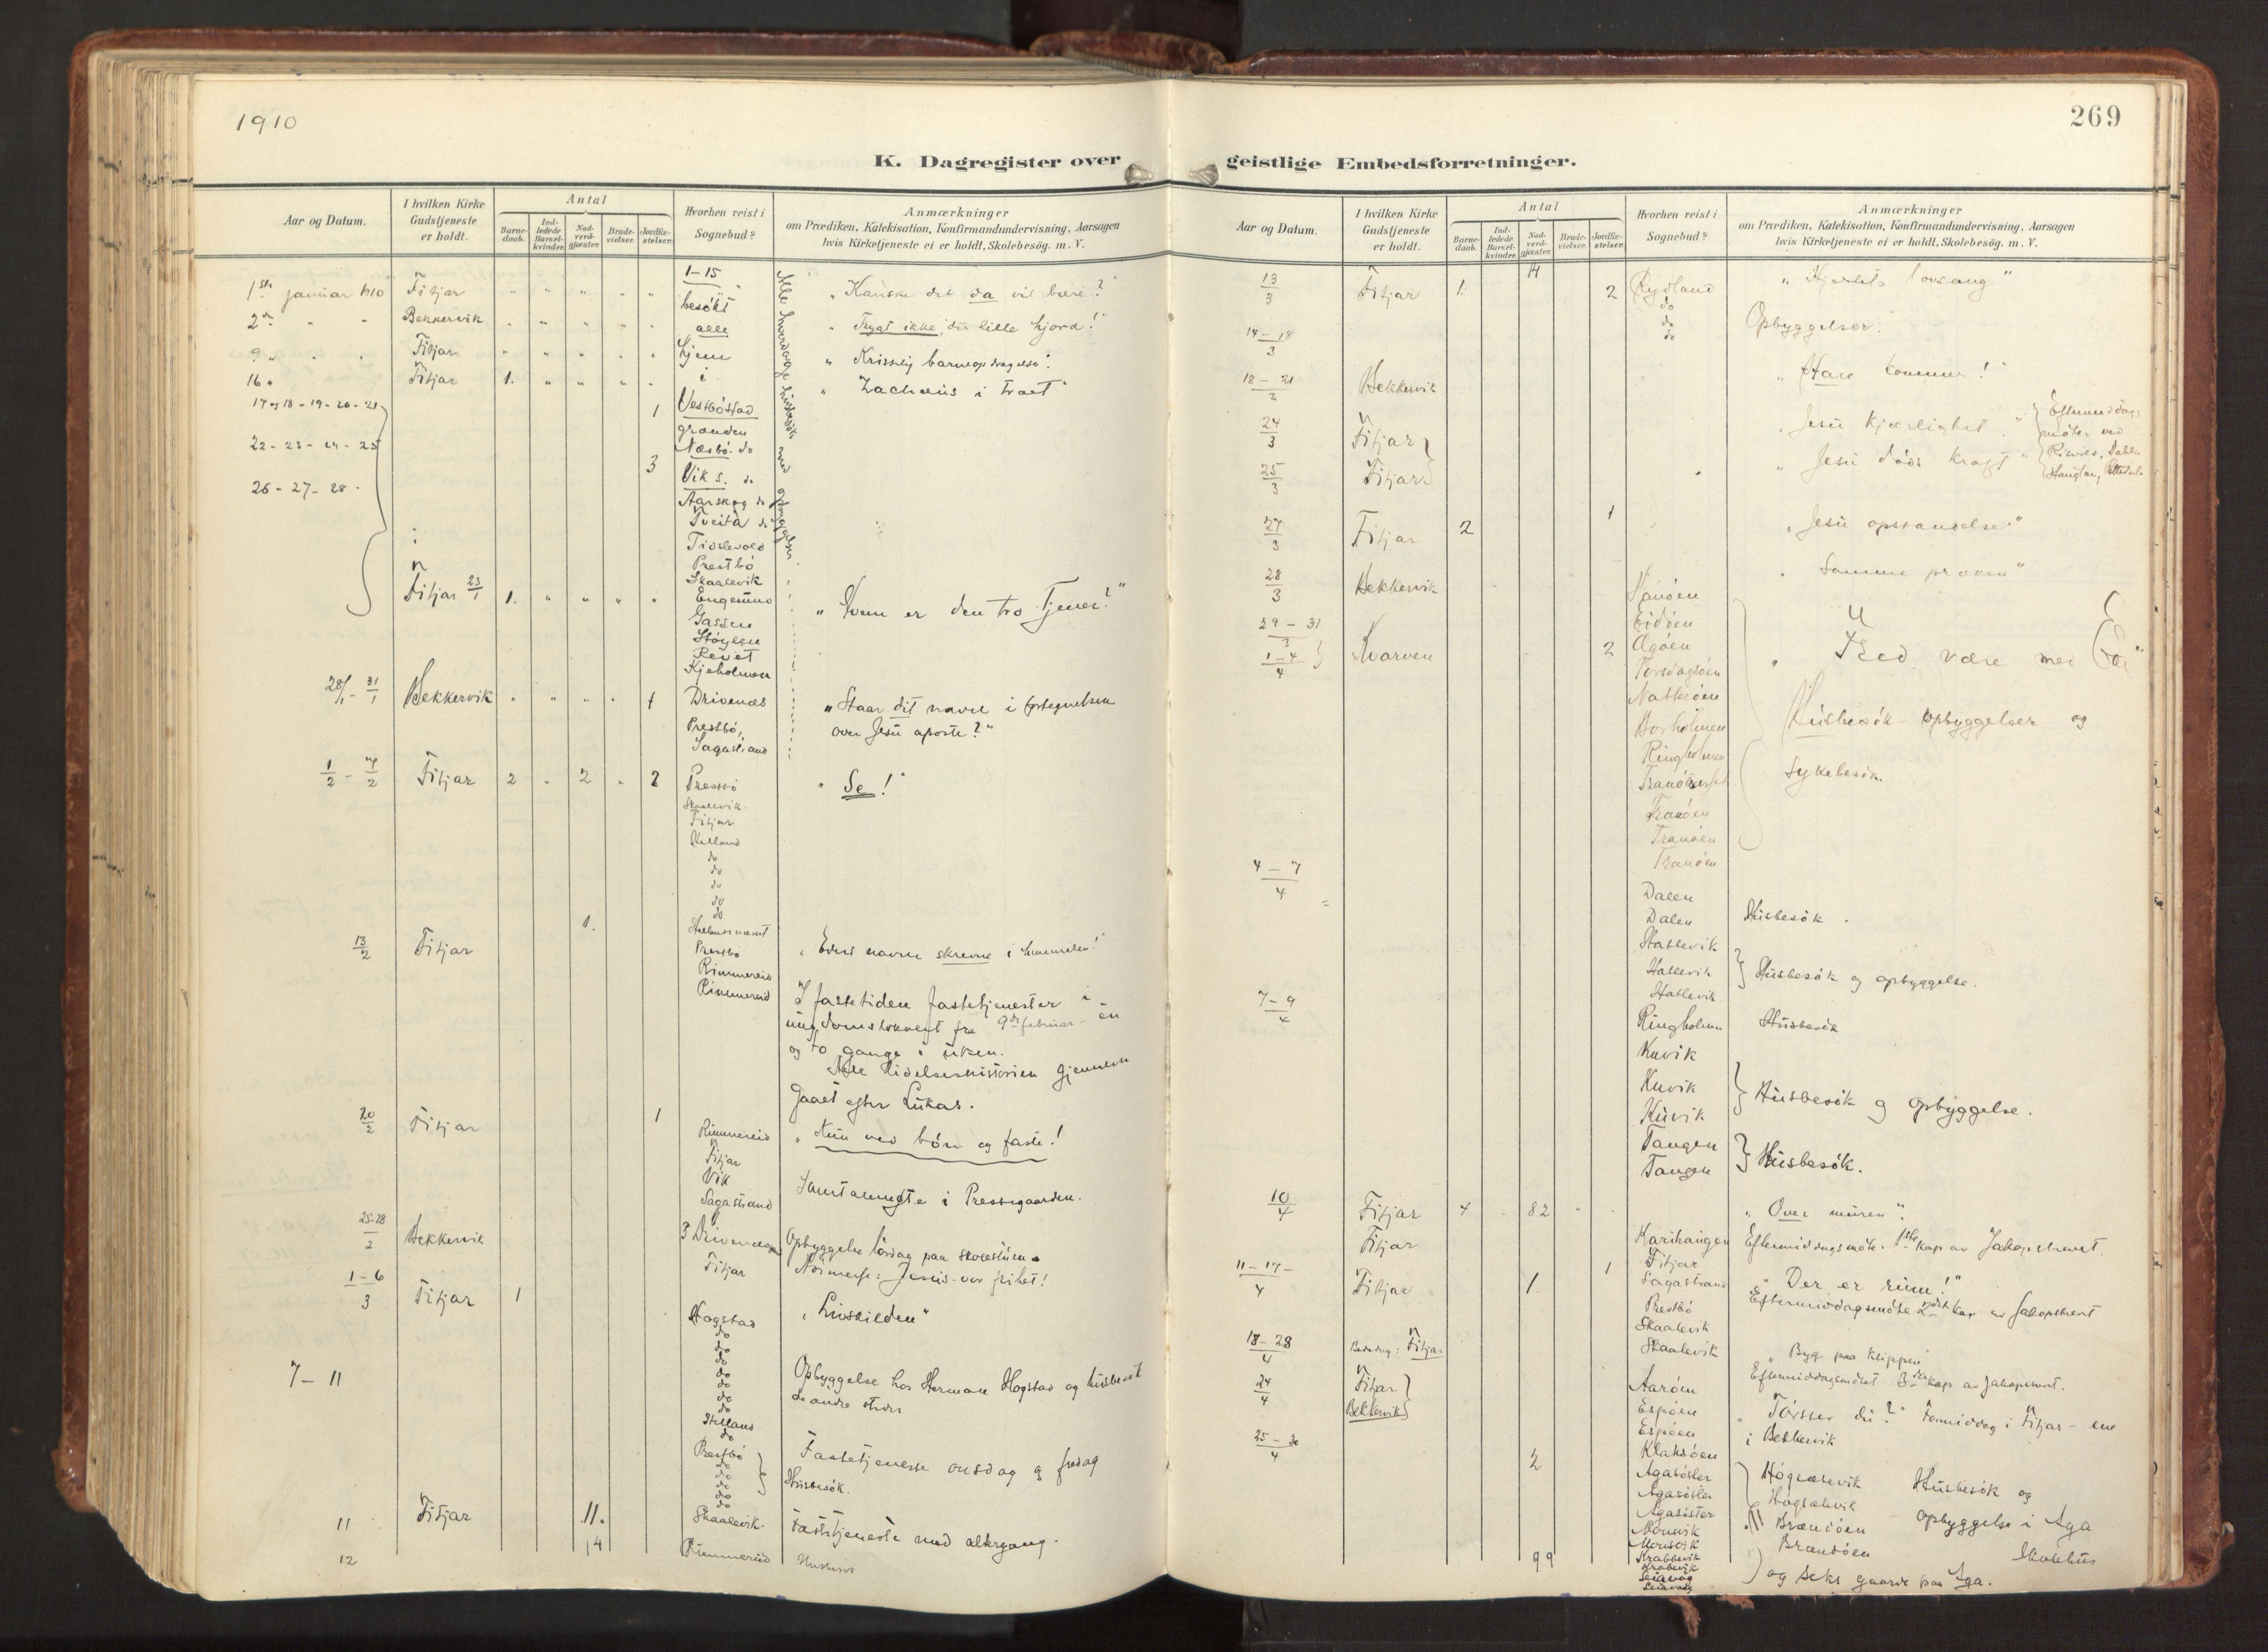 1910
K. Dagregister over
Aar og Datum.
I hvilken Kirke Gudstjeneste er holdt.
Antal
Barne-daab.
Ind-ledede Barsel-kvinder.
Nad-verd-gjæster.
Brude-vielser.
Jordfæ-stelser.
Hvorhen reist i Sognebud?
Anmærkninger
om Prædiken, Katekisation, Konfirmandundervisning, Aarsagen
hvis Kirketjeneste ei er holdt, Skolebesög. m. V.
1-15
1ste januar 1910 Fitjar besökt "Kanske det da vil bære?"
2den Bekkervik alle "Frygt ikke, du lille hjord!"
9 Fitjar hjem "Kristelig barneopdragelse".
16 Fitjar 1. i "Zachæus i træet"
Alle hverdage husbesök med opbyggelse
17 og 18-19-20-21 1 Vestböstad
grænden
22-23-24-25 Næsbö do
3 Vik s. do
26-27-28 Aarskog do
Tveita do
Tislevold
Prestbö
Skaalevik
Fitjar 23/1 1. Engesund "Hvem er den tro tjener?"
Gassen
Stöylen
Revet
Kjeholmen
28/1-31/1 Bekkervik 1 Drivenes "Staar dit navn i fortegnelsen
Prestbö, over Jesu apostle?"
Sagastrand
1/2-7/2 Fitjar 2 2 2 Prestbö "Se!"
Skaalevik
Fitjar
Helland
do
do
do
do
do
1.
13/2 Fitjar Prestbö "Eders navne skrevne i himmelen!"
Rimmereid
Rimmereid I fastetiden fastetjenester i
ungdomslokalet fra 9de februar - en
og to gange i uken.
Alle Lidelseshistorien gjennem
gaaet efter Lukas.
20/2 Fitjar 1
Rimmereid "Kun ved bön og faste!"
Fitjar
Vik
Sagastrand i Prestegaarden.
25-28/2 Bekkervik 3 Drivenes Opbyggelse lördag paa skolestuen
Fitjar Nöimesse: Jesus vor frihet!
1-6/3 Fitjar 1
Hogstad "Livskilden"
do
do
do
do
do
do
7-11 Opbyggelse hos Herman Hogstad og husbesök
de andre steder
Helland
do
Prestbö Fastetjeneste onsdag og fredag
do
do Husbesök.
do
do
11 Fitjar 11. Skaalevik. Fastetjeneste med altergang.
12 14 Rimmereid Husbesök
269
geistlige Embedsforretninger.
Aar og Datum.
I hvilken Kirke Gudstjeneste er holdt.
Antal
Barne-daab.
Ind-ledede Barsel-kvinder.
Nad-verd-gjæster.
Brude-vielser.
Jordfæ-stelser.
Hvorhen reist i Sognebud?
Anmærkninger
om Prædiken, Katekisation, Konfirmandundervisning, Aarsagen
hvis Kirketjeneste ei er holdt, Skolebesög. m. V.
14
13/3 Fitjar 1. 2 Rydland "Hjertets lovsang"
do
do Opbyggelser.
do
14-18/3
18-21/3 Bekkervik "Han kommer!"
24/3 Fitjar "Jesu kjærlighet." Eftermiddags
möter ved
25/3 Fitjar "Jesu döds kraft"
1
27/3 Fitjar 2 "Jesu opstandelse"
28/3 Bekkervik "Samme præken"
29-31/3 Eidöen
1-4/4 Kvarven 2 Agöen "Fred være med Eder"
Torsdagsöen
Natteröen
Borholmen Husbesök - opbyggelser og
Ringholmen
sykebesök.
Tranöen
Tranöen
Tranöen
4-7/4
Dalen
Dalen Husbesök.
Hatlevik
Hatlevik Husbesök og opbyggelse.
Hatlevik
7-9/4 Ringholmen Husbesök
Kuvik
Kuvik Husbesök og opbyggelse.
Kuvik
Tangen
Tangen Husbesök.
10/4 Fitjar 4 82 "Over muren".
Fitjar Karihaugen Eftermiddagsmöte. 1ste kap av Jakopsbrevet.
Fitjar
11-17/4 Fitjar 1. 1 Sagastrand "Der er rum!"
Prestbö Eftermiddagsmöte 2det kap av Jakopsbrevet
Skaalevik
18-28/4 Bededag: Fitjar Skaalevik "Byg paa klippen"
Eftermiddagsmötet 3die kap av Jakopsbrevet.
24/4 Fitjar Aaröen
Bekkervik Espöen "Törster du?" Formiddag i Fitjar - em
Espöen i Bekkervik
25-30/4 2 Klaksöen
Agasöster Högælvevik Husbesök og
Agasöster
Agasöster Brandöen opbyggelse i Aga
Monsvik Brandöen Skolehus
Monsvik
99 Krabbevik
Krabbevik og seks gaarde paa Aga.
Seiavaag
Seiavaag